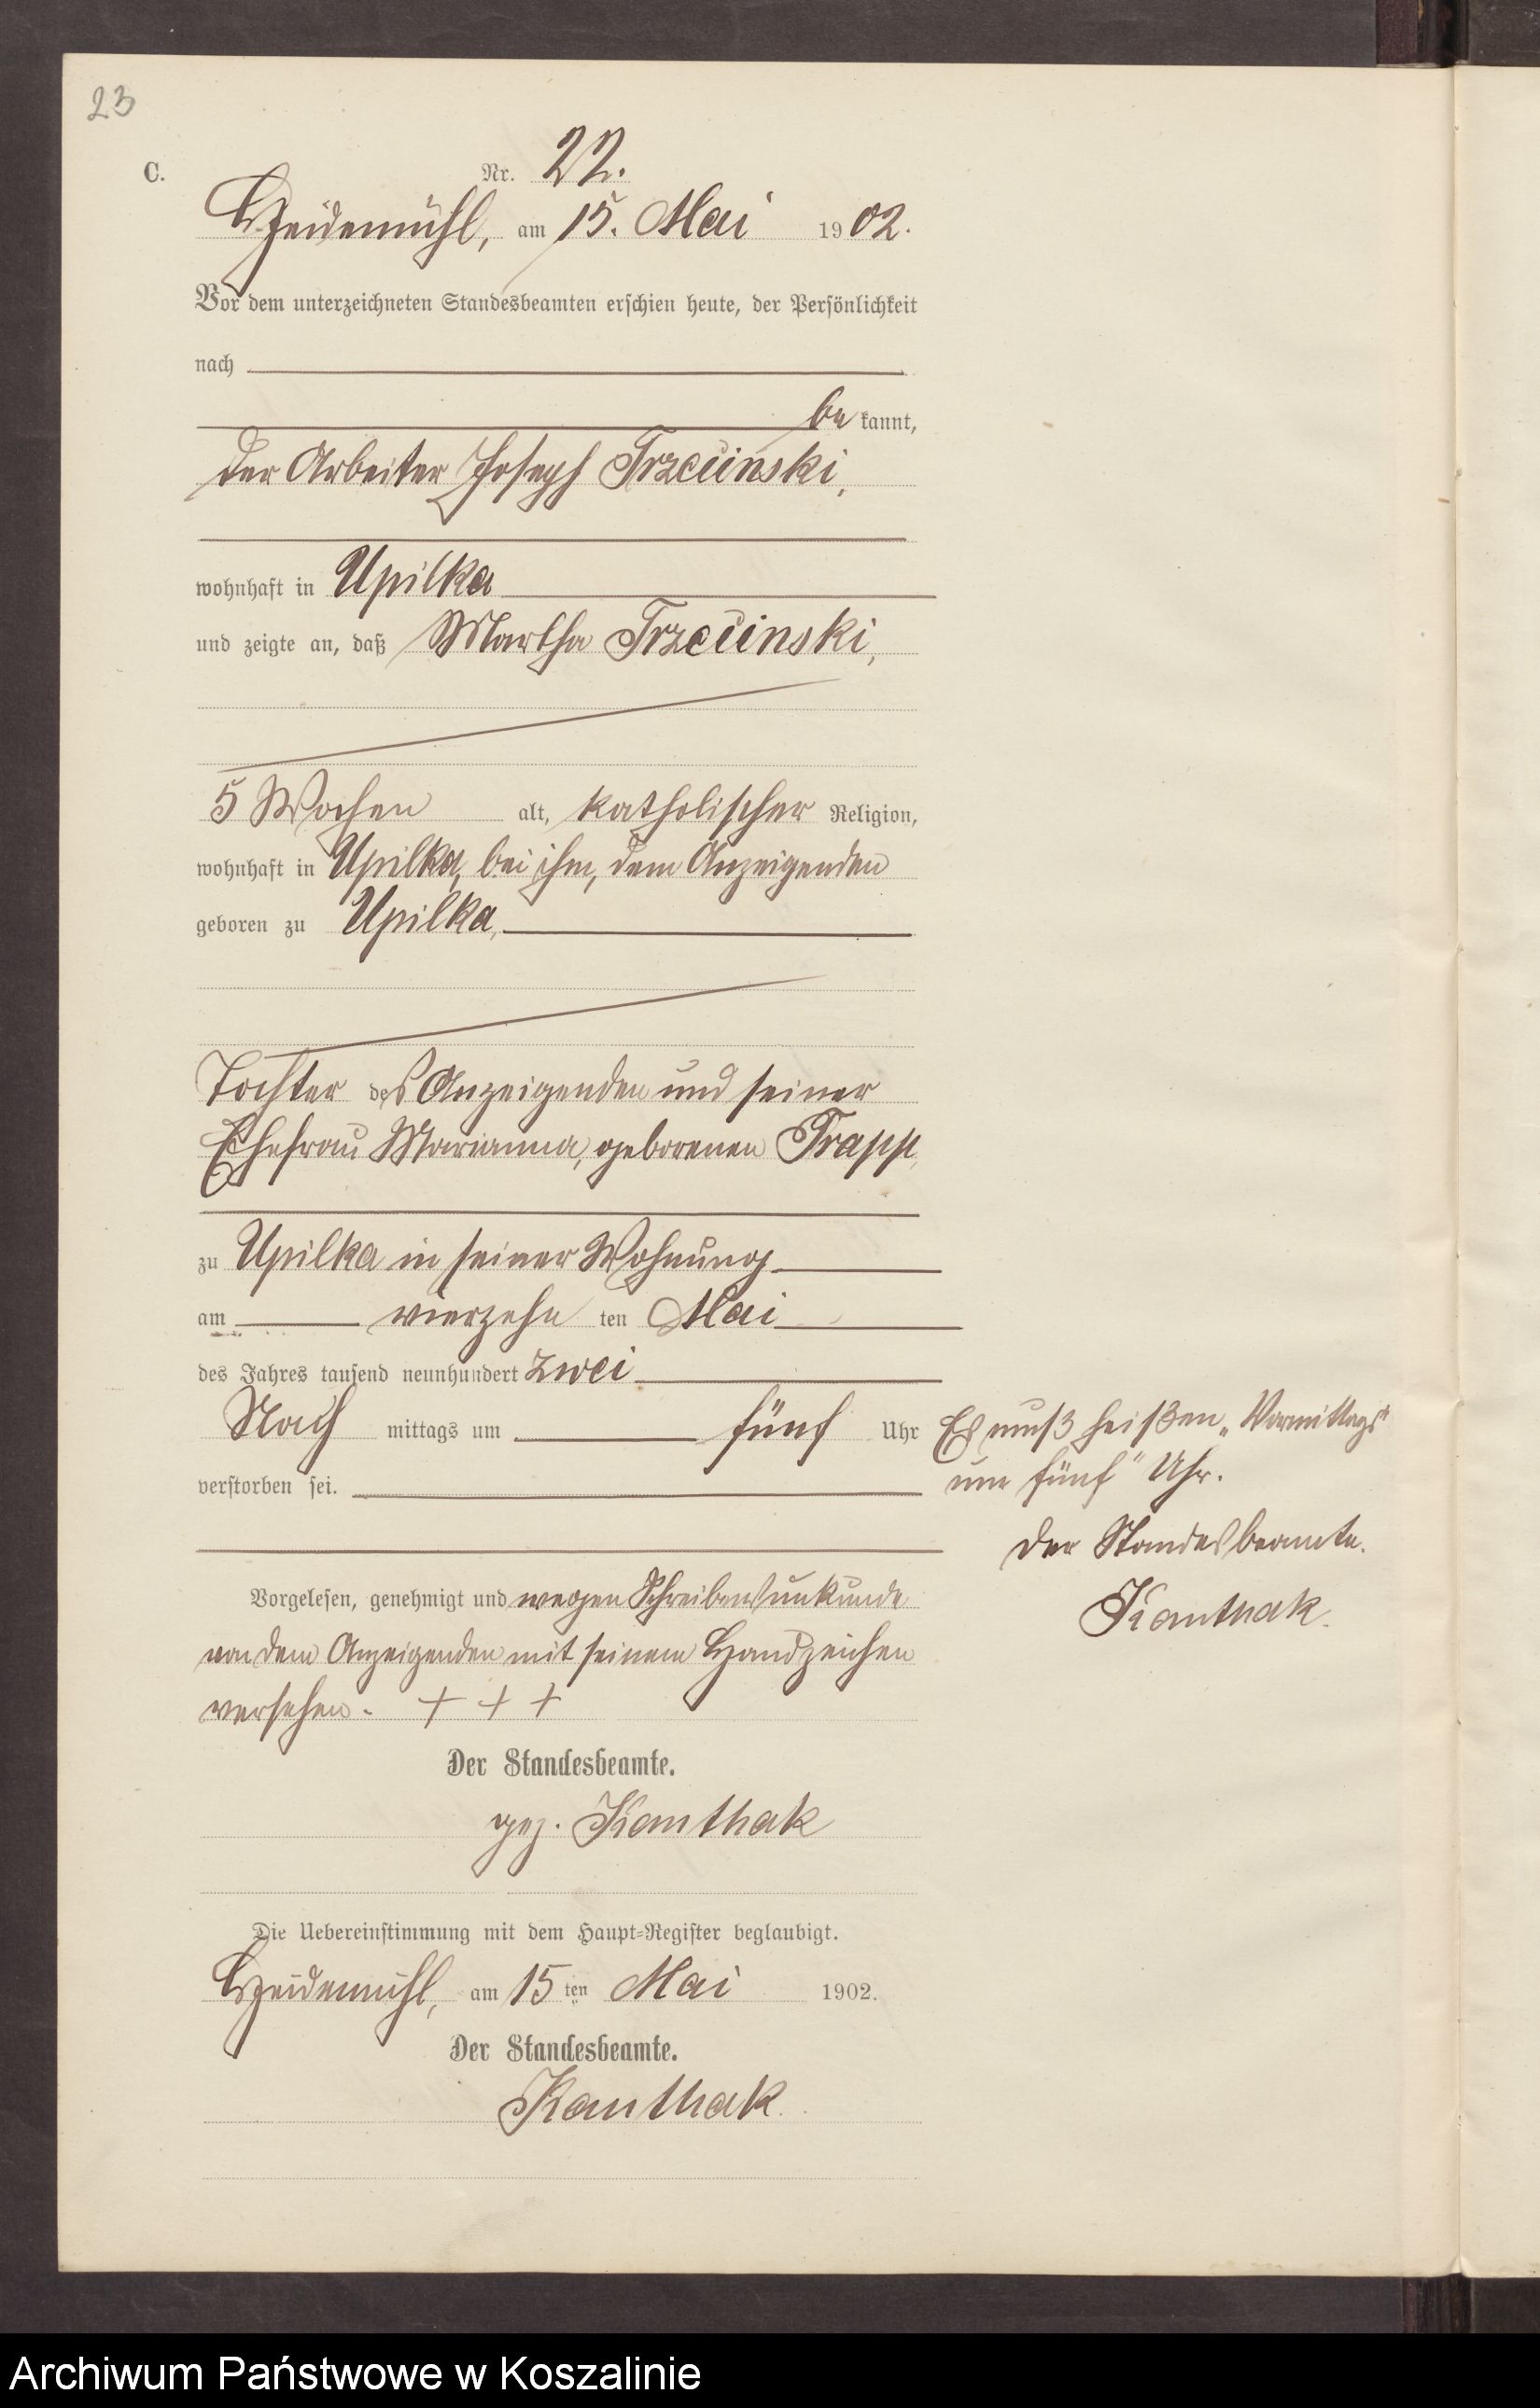 23
C.
Nr. 22.
Heidemühl, am 15. Mai 1902.
Vor dem unterzeichneten Standesbeamten erschien heute, der Persönlichkeit
nach
be kannt,
der Arbeiter Joseph Trzcinski,
wohnhaft in Upilka
und zeigte an, daß Martha Trzcinski,
5 Wochen alt, katholischer Religion,
wohnhaft in Upilka, bei ihm, dem Anzeigenden
geboren zu Upilka,
Tochter des Anzeigenden und seiner
Ehefrau Marianna, geborenen Trapp,
zu Upilka in seiner Wohnung
am vierzehn ten Mai
des Jahres tausend neunhundert zwei
Nach mittags um fünf Uhr
verstorben sei.
Es muß heißen „Vormittags"
um fünf" Uhr.
Der Standesbeamte.
Kanthak.
Vorgelesen, genehmigt und wegen Schreibensunkunde
von dem Anzeigenden mit seinem Handzeichen
versehen. + + +
Der Standesbeamte.
gez. Kanthak
Die Uebereinstimmung mit dem Haupt-Register beglaubigt.
Heidemühl, am 15ten Mai 1902.
Der Standesbeamte.
Kanthak.
Archiwum Państwowe w Koszalinie